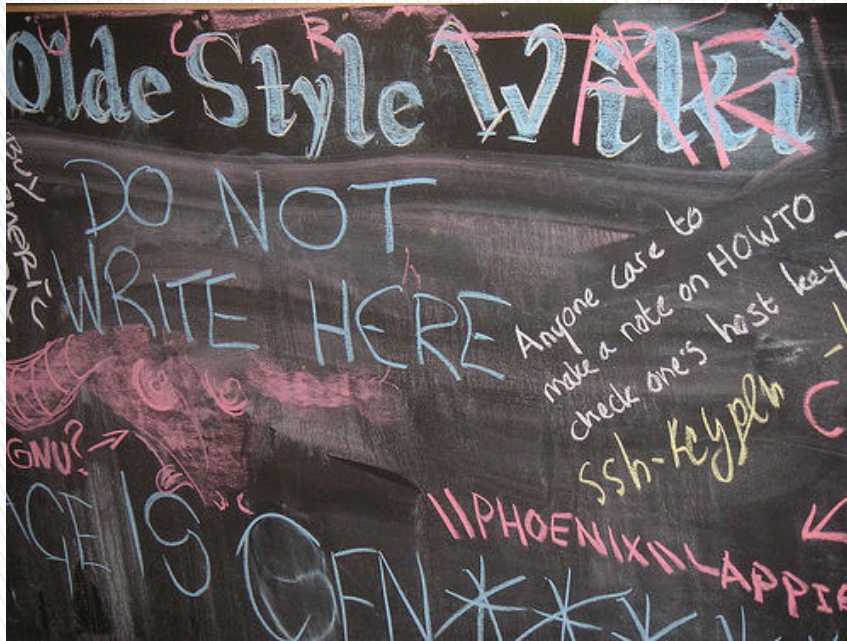 Olde Style Wiki
DO NOT
WRITE HERE
Anyone care to
make a note on HOWTO
check one's host key
ssh-keygen
GNU?
IS
\\PHOENIX\\LAPPIE